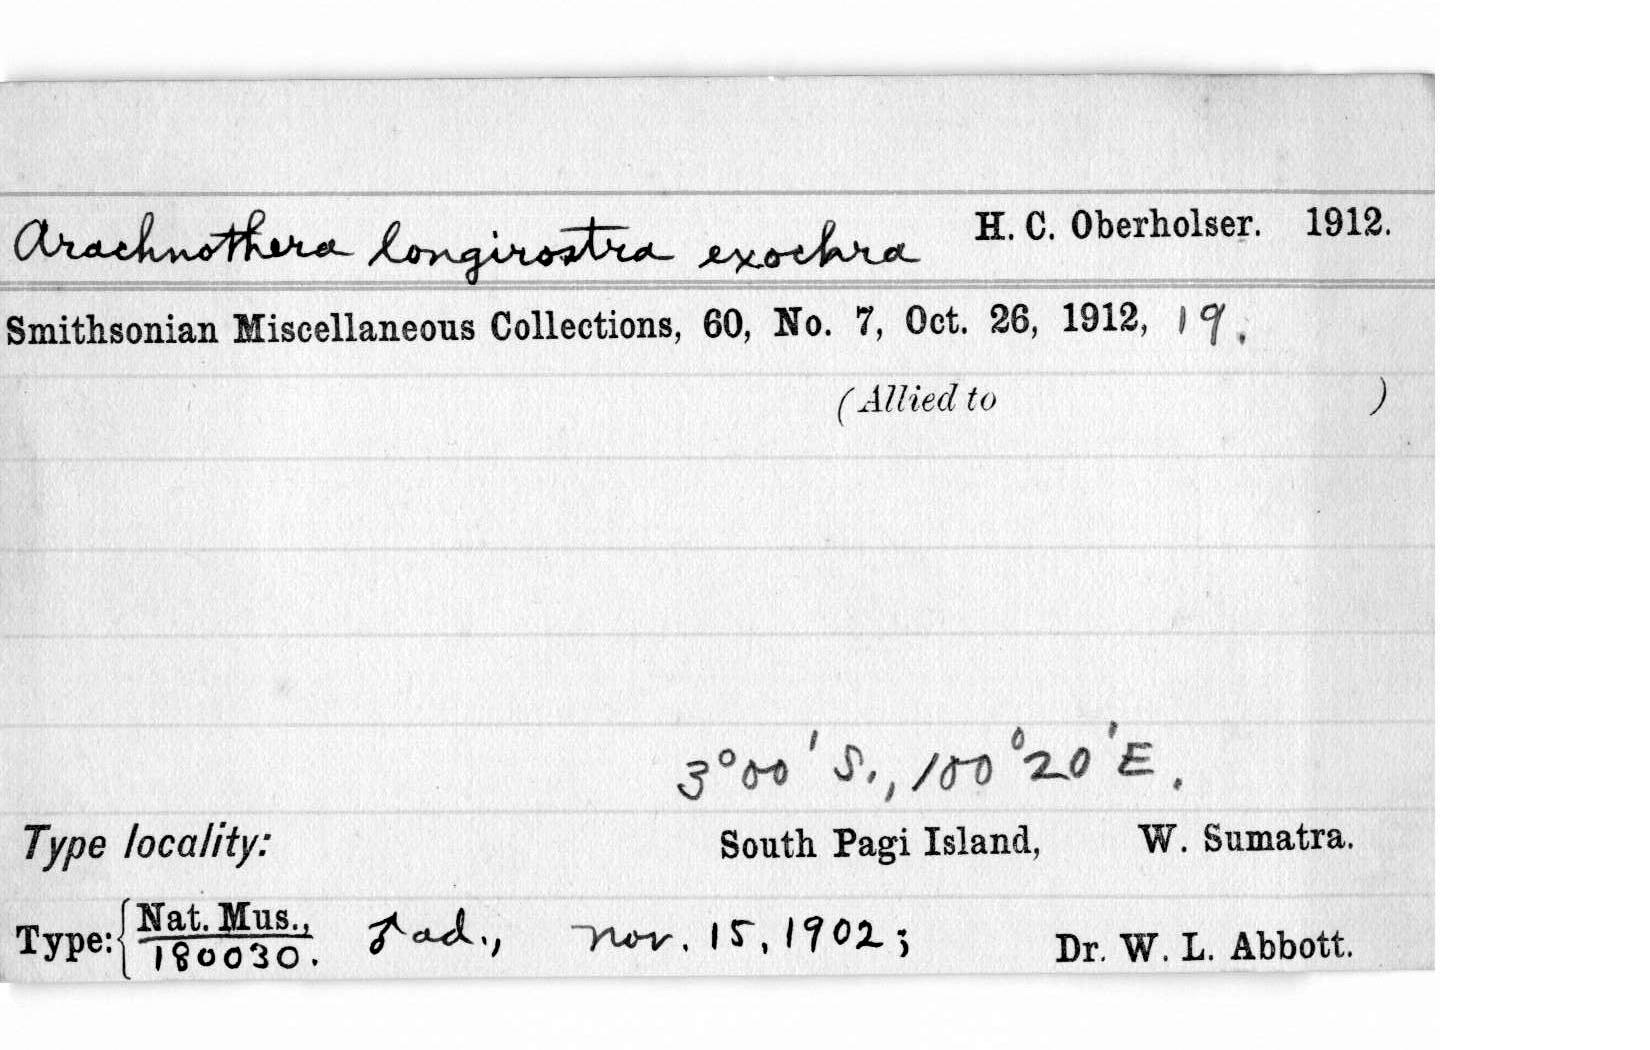 Arachnothera longirostra exochra H. C. Oberholser. 1912.
Smithsonian Miscellaneous Collections, 60, No. 7, Oct. 26, 1912, 19.
(Allied to )
3°00'S., 100°20'E.
Type locality: South Pagi Island, W. Sumatra.
Type: { Nat. Mus., 180030. ♂ ad., Nov. 15, 1902; Dr. W. L. Abbott.